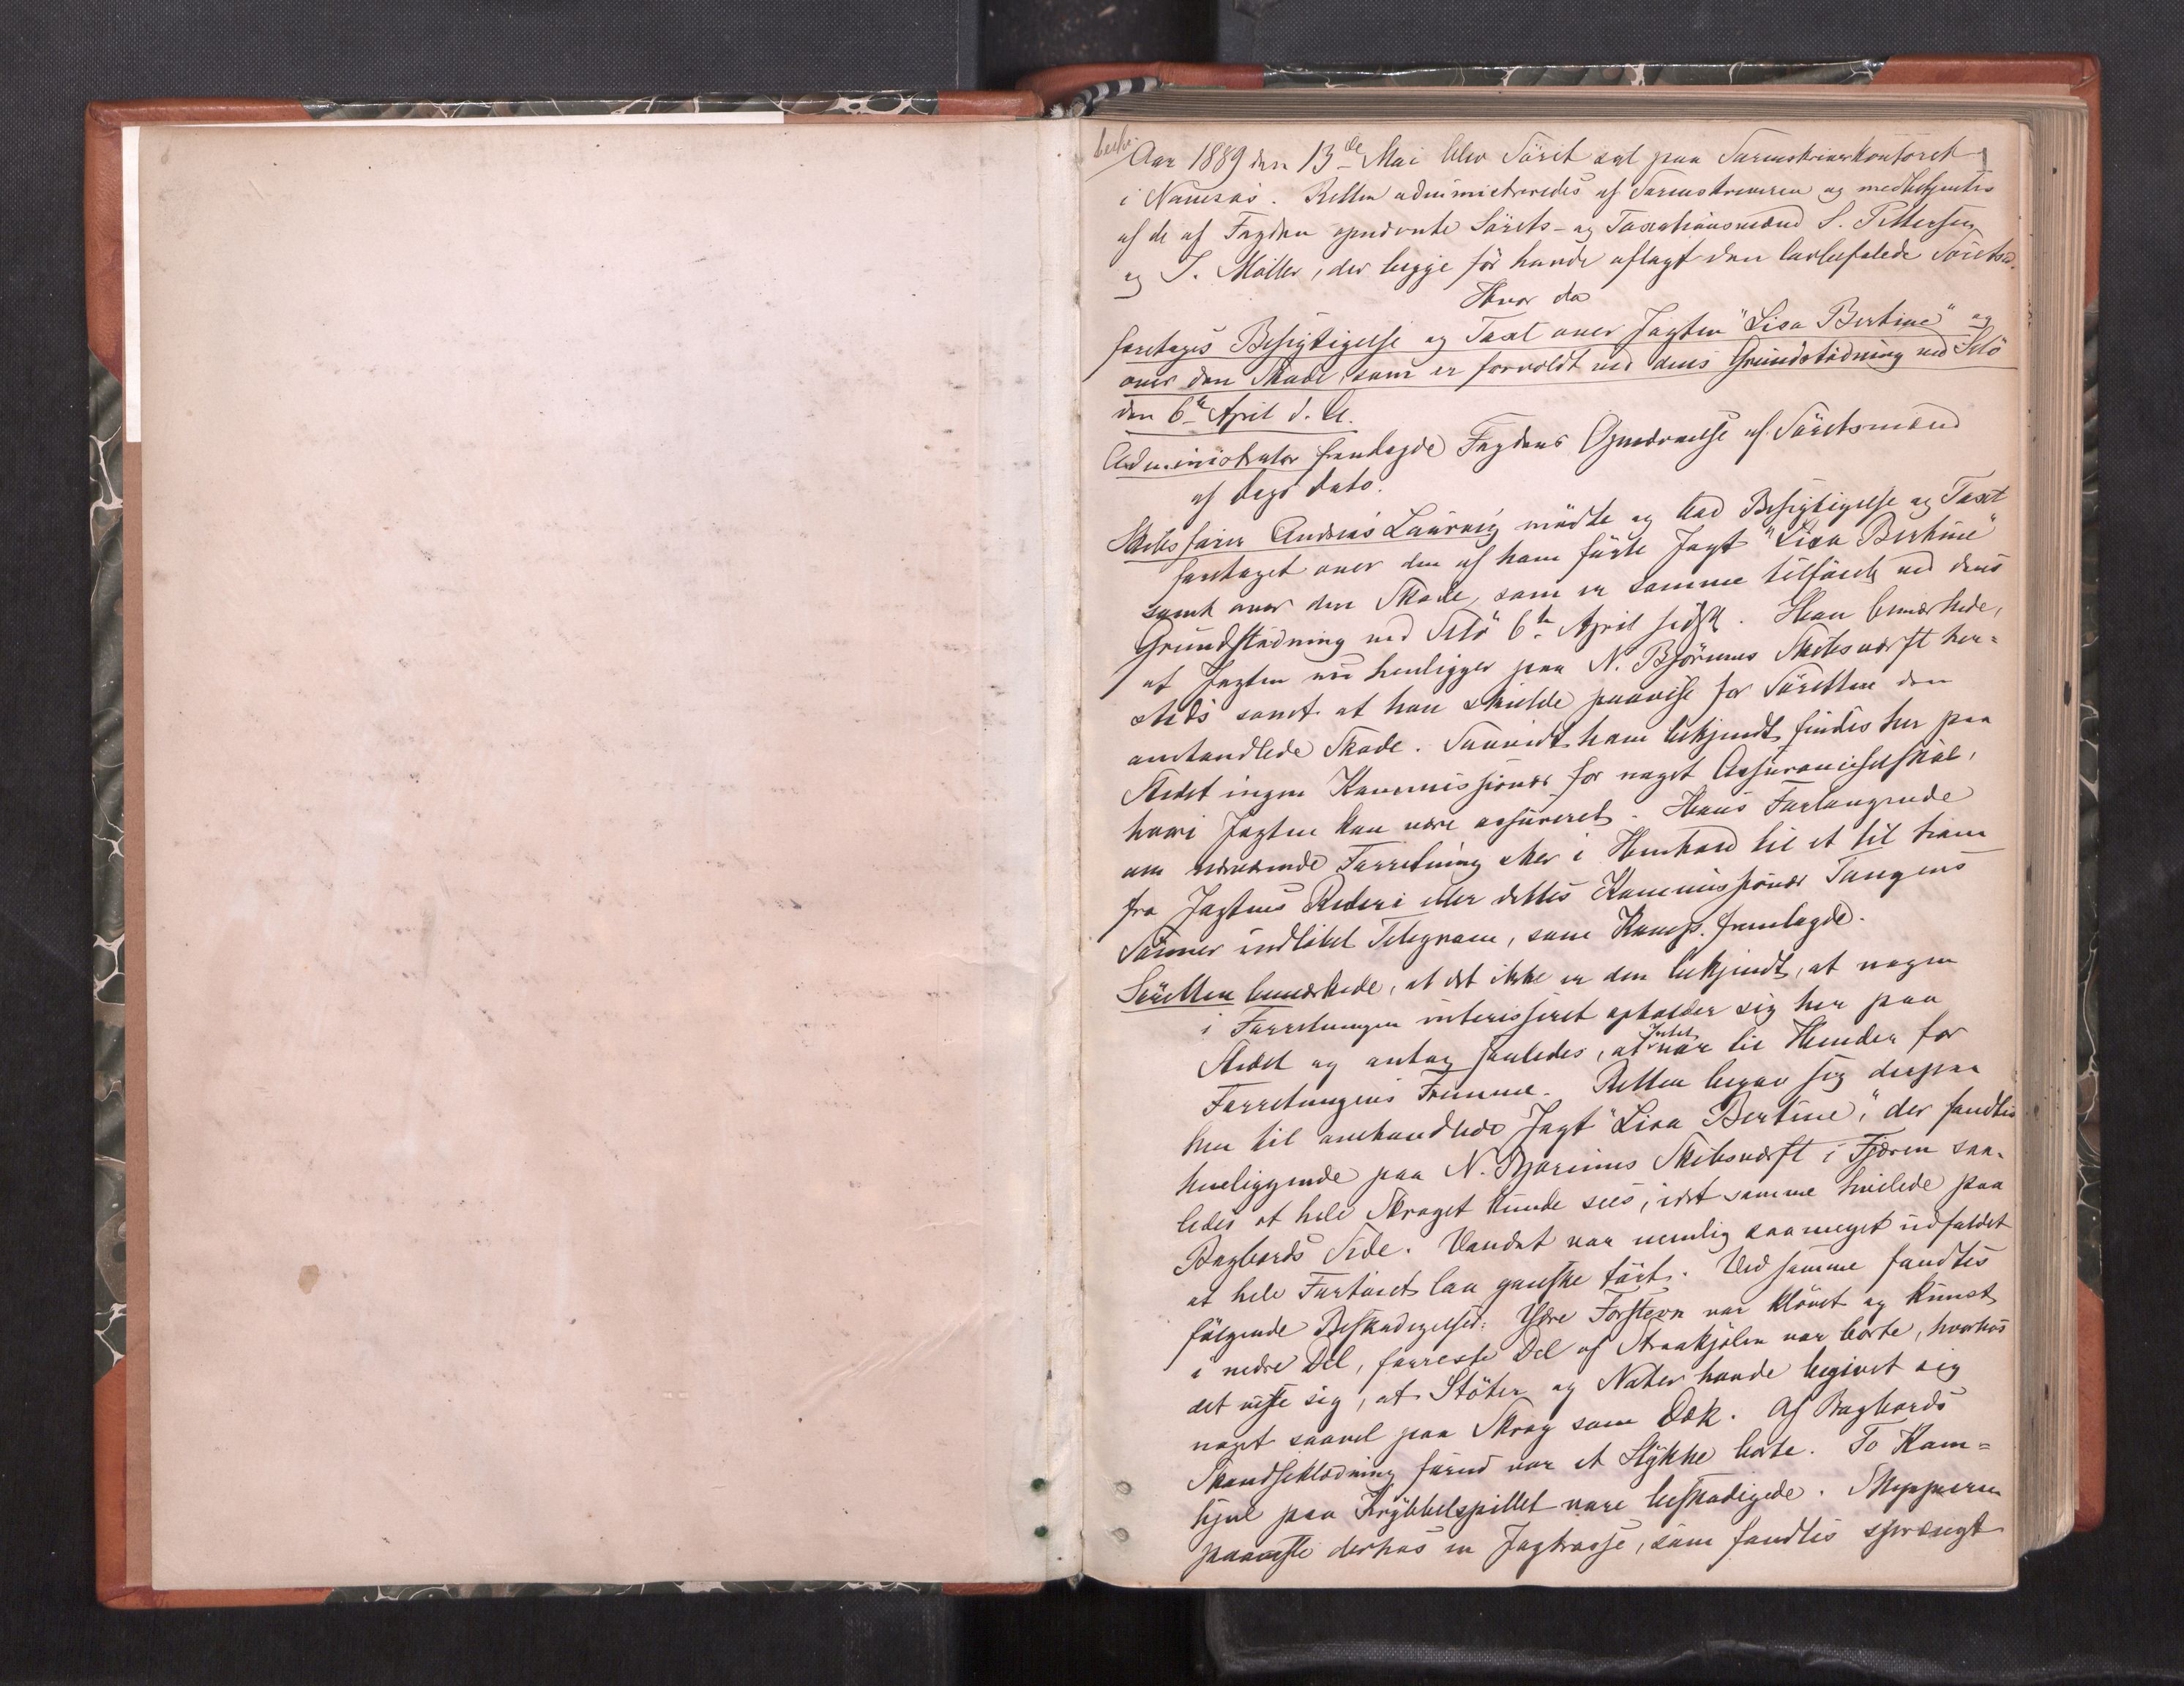 Aar 1889 den 13de Mai blev Söret sat paa Sorenskriverkontoret
i Namsos. Retten administreredes af Sorenskriveren og medbetjentes
af de af Fogden opnævnte Sörets- og Taxationsmænd S. Pettersen
og J. Möller, der begge för havde aflagt den lovbefalede Söretsed.
Hvor da
foretages Besigtigelse og Taxt over Jagten "Lisa Bertine" og
over den Skade, som er forvoldt ved dens Grundstödning ved
den 6te April d. A.
Administrator fremlagde Fogdens Opnævnelse af Söretsmænd
af Dags Dato.
Skibsförer Andreas Laurvig mödte og bad Besigtigelse og Taxt
foretaget over den af ham förte Jagt "Lisa Bertine"
samt over den Skade, som er samme tilföiet ved dens
Grundstödning ved 6te April sidstl. Han bemærkede,
at Jagten nu henligger paa N. Björums Skibsværft her-
steds samt at han skulde paavise for Söretten den
omhandlede Skade. Saavidt ham bekjendt findes her paa
Stedet ingen Kommissionær for noget Assuranceselskab,
hvori Jagten kan være assureret. Hans Forlangende
om nærværende Forretning sker i Henhold til et til ham
fra Jagtens Rederi eller dettes Kommissionær Tangens
Sönner indlöbet Telegram, som Komp. fremlagde.
Söretten bemærkede, at det ikke er den bekjendt, at nogen
i Forretningen interesseret opholder sig her paa
Stedet og antog saaledes, at Intet var til Hinder for
Forretningens Fremme. Retten begav sig derpaa
hen til omhandlede Jagt "Lisa Bertine", der fandtes
henliggende paa N. Bjørums Skibsværft i Fjæren saa-
ledes at hele Skroget kunde sees, idet samme hvilede paa
Bagbords Side. Vandet var nemlig saameget udfaldet
at hele Fartöiet laa ganske tört. Ved samme fandtes
fölgende Beskadigelser: Ydre Forstevn var klövet og knust
i nedre Del, forreste Del af Straakjölen var borte, hvorhos
det viste sig, at Stöter og Nater havde begivet sig
noget saavel paa Skrog som Dæk. Af Bagbords
Skandseklædning forud var et Stykke borte. To Kam-
hjul paa Krybbelspillet vare beskadigede. Skipperen
paaviste derhos en Jagtrosse, som fandtes sprængt